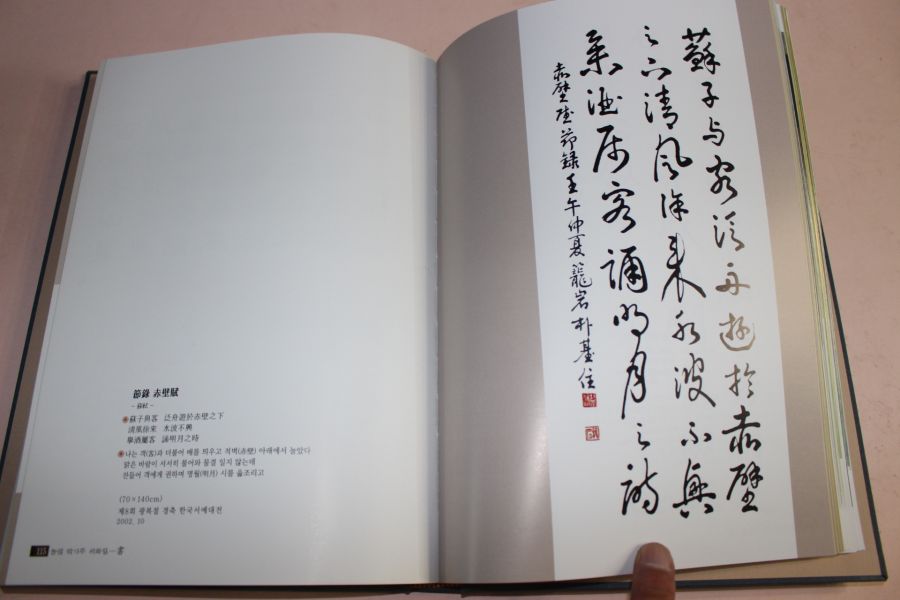 節錄 赤壁賦
- 蘇軾 -
蘇子與客 泛舟遊於赤壁之下
淸風徐來 水波不興
擧酒屬客 誦明月之時
나는 객(客)과 더불어 배를 띄우고 적벽(赤壁) 아래에서 놀았다
맑은 바람이 서서히 불어와 물결 일지 않는데
잔들어 객에게 권하며 명월(明月) 시를 읊조리고
(70×140cm)
제8회 광복절 경축 한국서예대전
2002. 10
115 농암 박기주 서화집—書
蘇子与客泛舟遊於赤壁
之下清風徐来水波不興
舉酒属客誦明月之詩
赤壁賦節録壬午仲夏籠岩朴基住